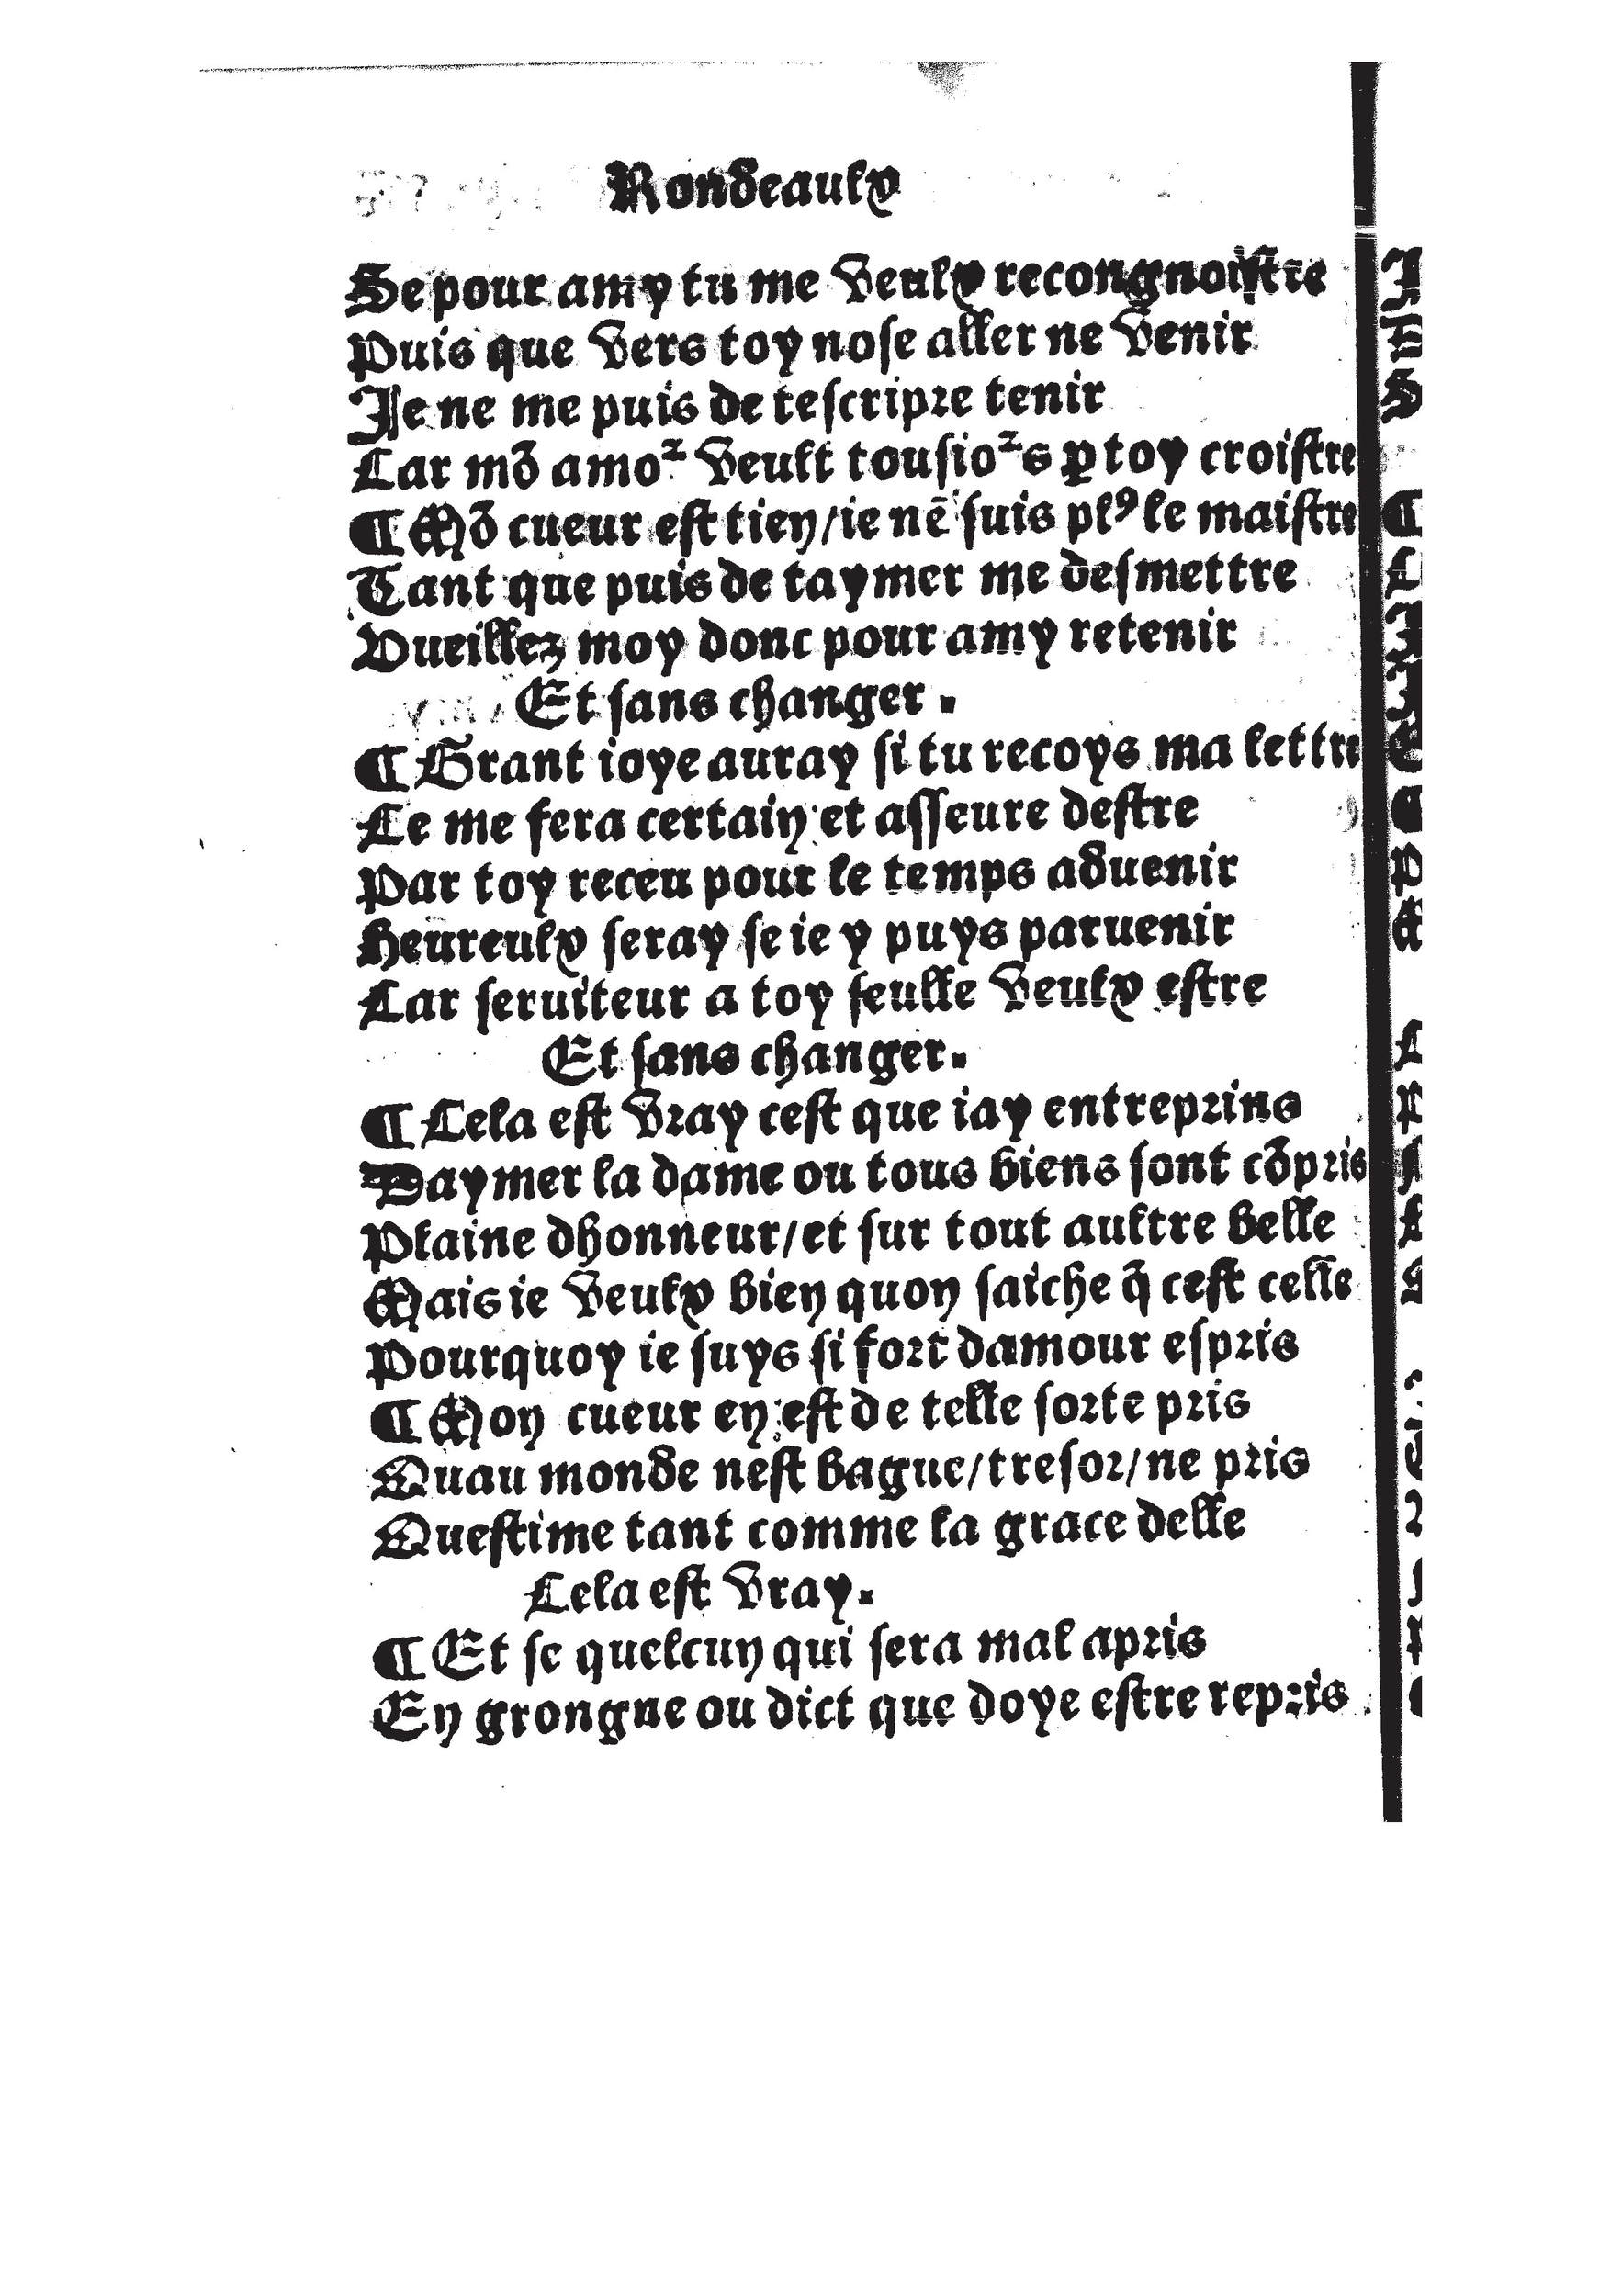 Rondeaulx
Se pour amy tu me veulx recongnoiſtre
Puis que vers toy noſe aller ne venir
Je ne me puis de teſcripꝛe tenir
Car mõ amoꝛ veult touſioꝛs ꝑ toy croiſtre
¶ Mõ cueur eſt tien/ie nẽ ſuis plꝰ le maiſtre
Tant que puis de taymer me deſmettre
Vueillez moy donc pour amy retenir
Et ſans changer.
¶ Grant ioye auray ſi tu recoys ma lettre
Ce me fera certain et aſſeure deſtre
Par toy receu pour le temps aduenir
Heureulx ſeray ſe ie y puys paruenir
Car ſeruiteur a toy ſeulle veulx eſtre
Et ſans changer.
¶ Cela eſt vꝛay ceſt que iay entrepꝛins
Daymer la dame ou tous biens ſont cõpꝛis
Plaine dhonneur/et ſur tout aultre belle
Mais ie veulx bien quon ſaiche q̃ ceſt celle
Pourquoy ie ſuys ſi foꝛt damour eſpꝛis
¶ Mon cueur en eſt de telle ſoꝛte pꝛis
Quau monde neſt bague/treſoꝛ/ne pꝛis
Queſtime tant comme la grace delle
Cela eſt vray.
¶ Et ſe quelcun qui ſera mal apꝛis
En grongne ou dict que doye eſtre repꝛis